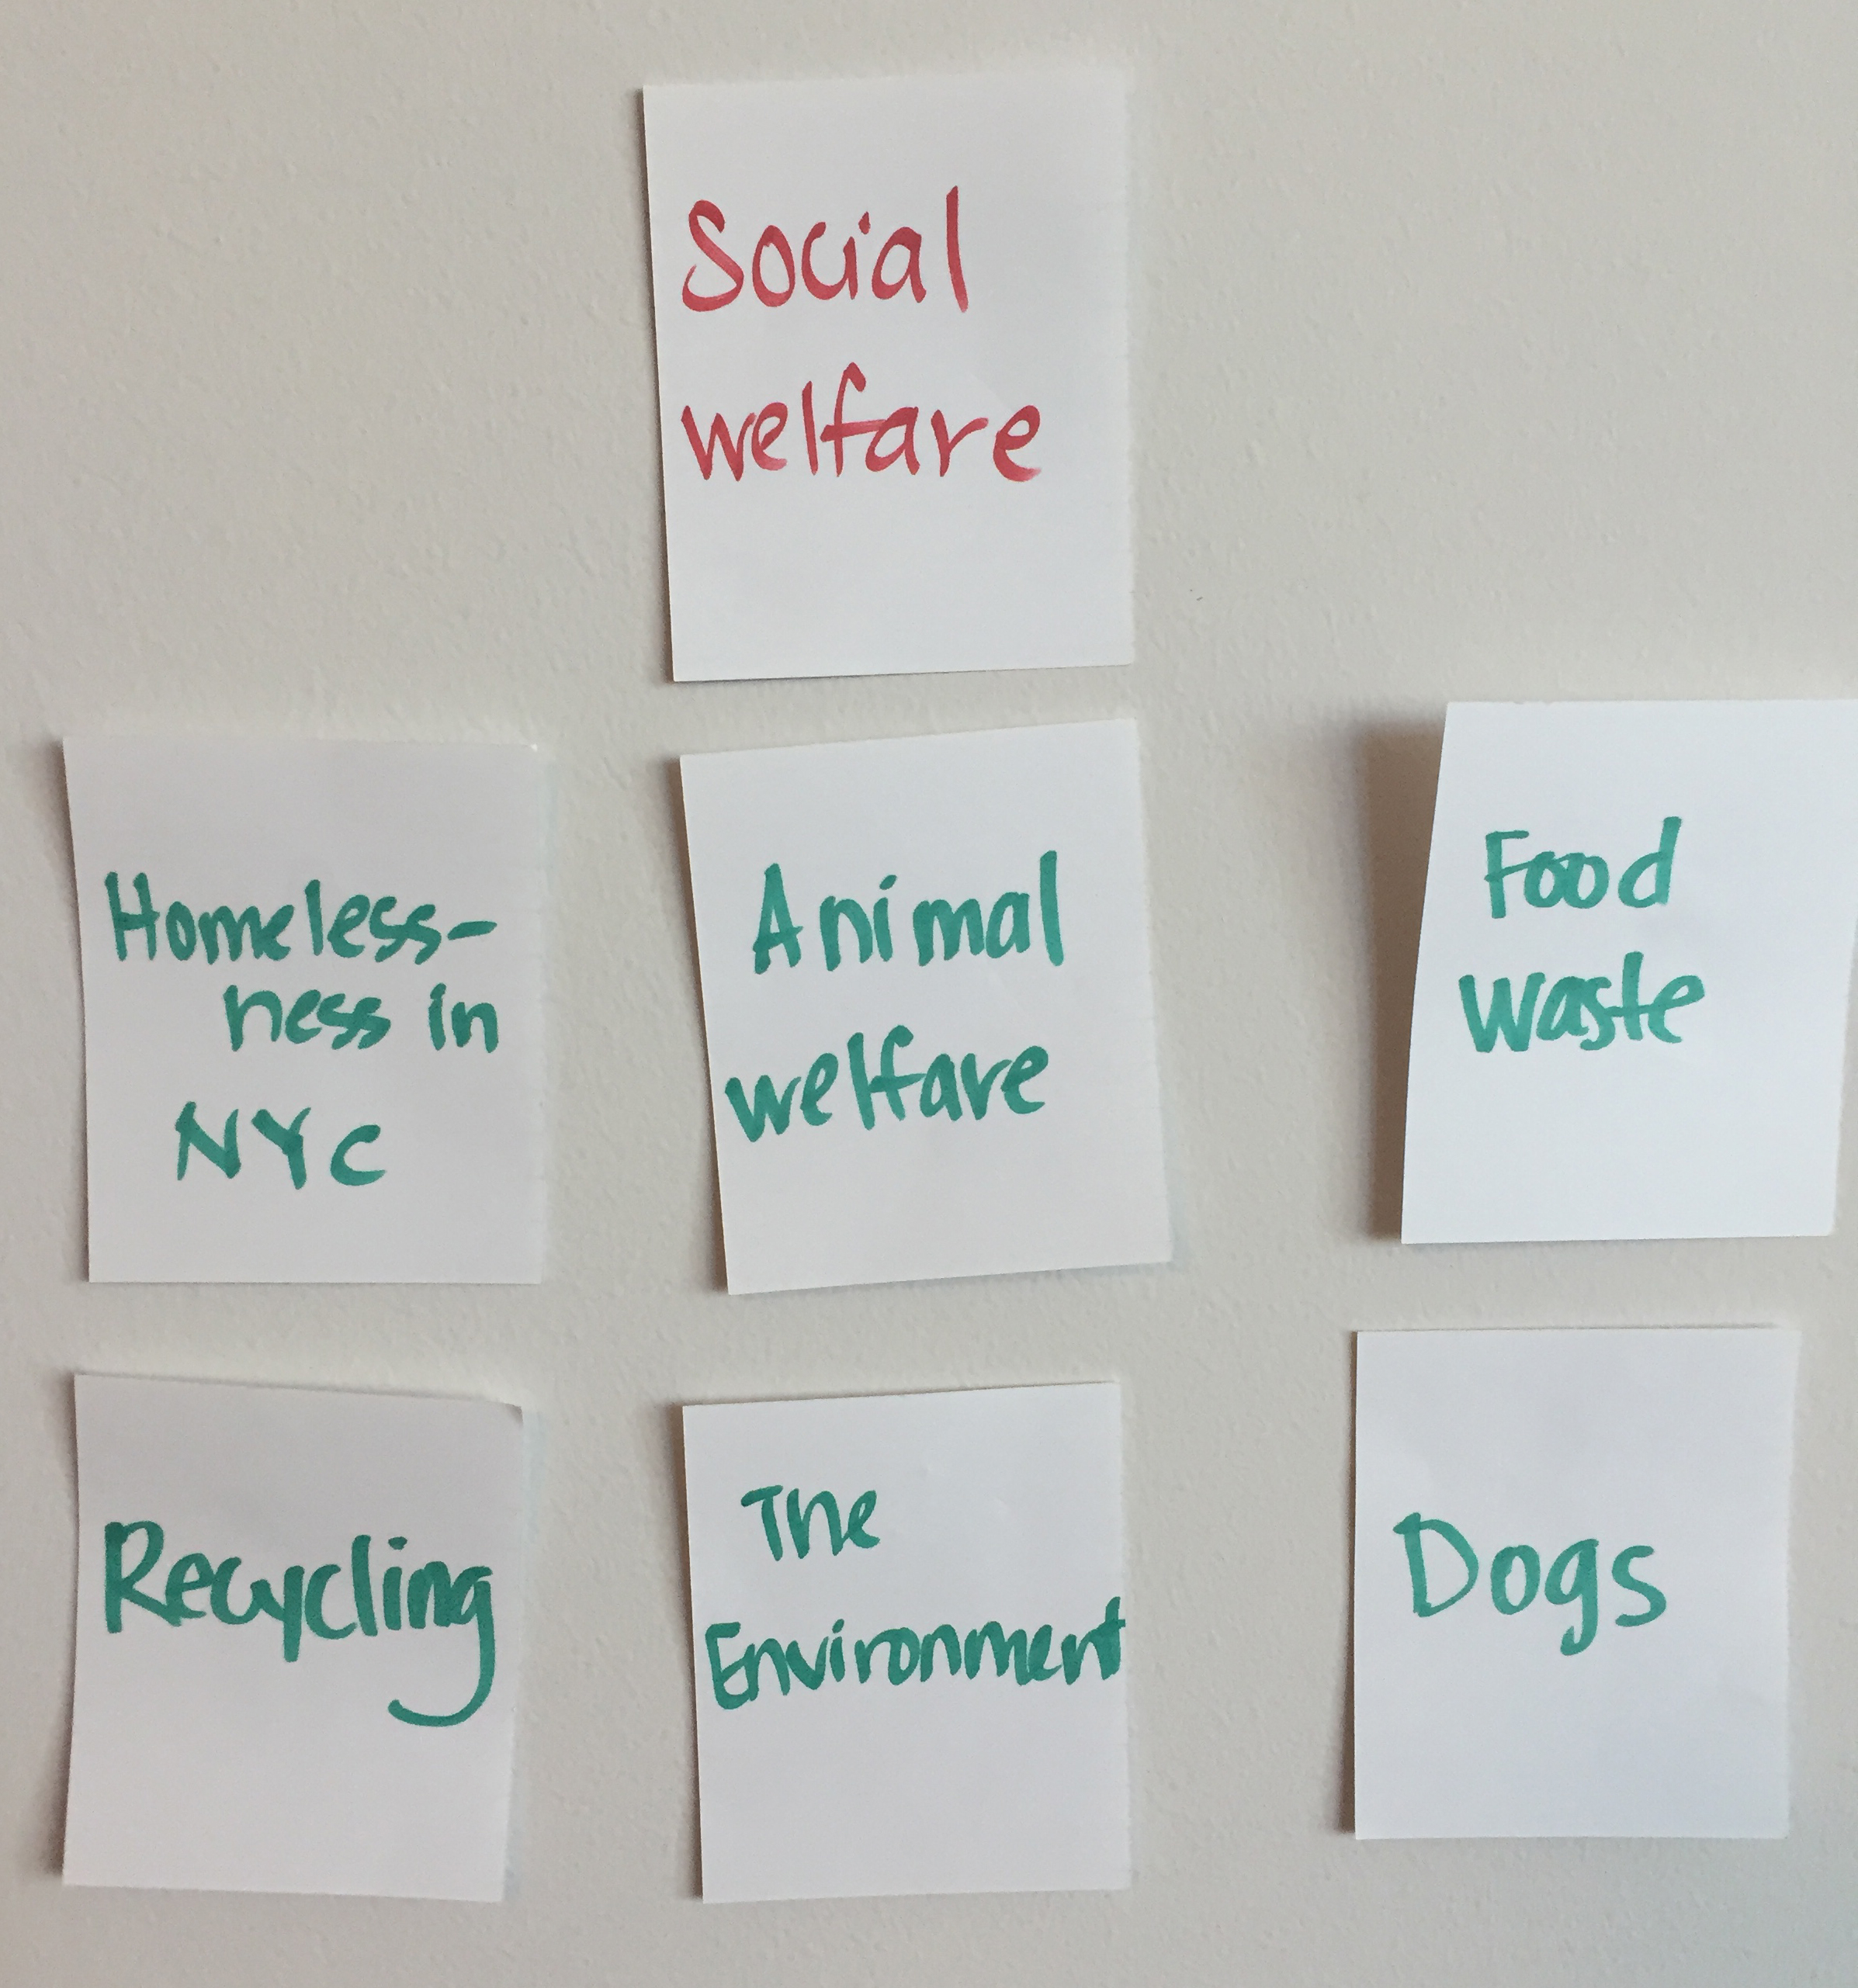 Social
welfare
Homeless-
ness in
NYC
Animal
welfare
Food
Waste
Recycling
The
Environment
Dogs